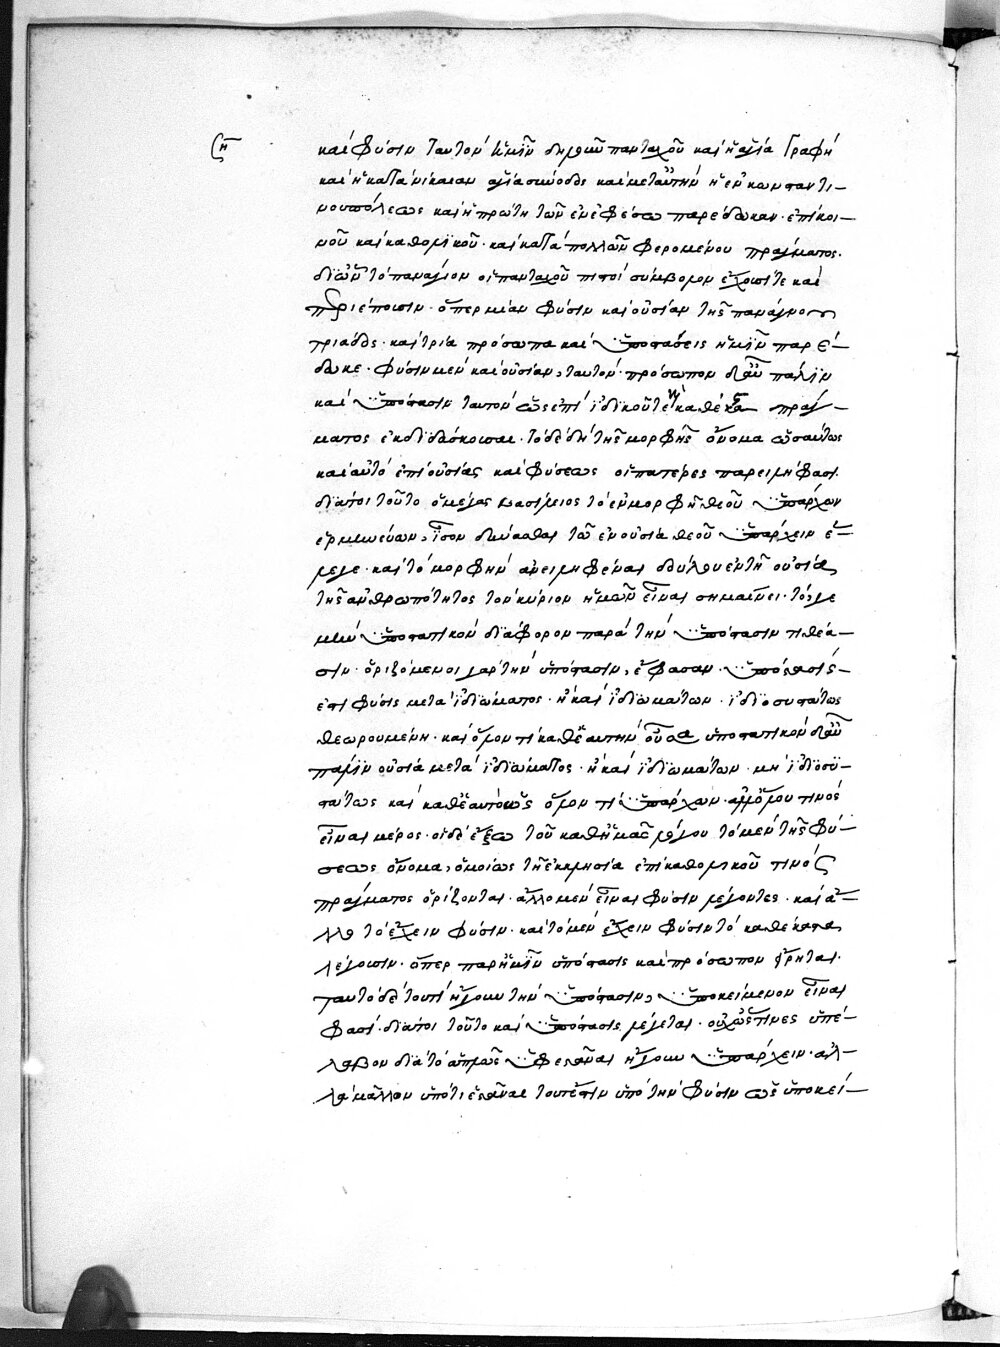 ϛη
καὶ φύσιν ταυτὸν ἡμῖν δηλοῦν πανταχοῦ καὶ ἡ ἁγία Γραφὴ
καὶ ἡ κατὰ νίκαιαν ἁγία σύνοδος καὶ μετ αὐτὴν ἡ ἐν κωνσταντι–
νουπόλεως καὶ ἡ πρώτη τῶν ἐν ἐφέσω παρέδωκαν· ἐπὶ κοι–
νοῦ καὶ καθολικοῦ· καὶ κατὰ πολλῶν φερομένου πράγματος.
δι ὧν τὸ πανάγιον οἱ πανταχοῦ πιστοὶ σύμβολον ἔχουσί τε καὶ
περιέπουσιν· ὅπερ μίαν φύσιν καὶ οὐσίαν τῆς παναγίου
τριάδος· καὶ τρία πρόσωπα καὶ ὑποστάσεις ἡμῖν παρέ–
δωκε· φύσιν μὲν καὶ οὐσίαν, ταυτόν· πρόσωπον δ αὖ πάλιν
καὶ ὑπόστασιν ταυτὸν ὡς ἐπὶ ἰδικοῦ τε καὶ καθέκαστα πράγ–
ματος ἐκδιδάσκουσαι· τὸ δὲ δὴ τῆς μορφῆς ὄνομα ὡσαύτως
καὶ αὐτὸ ἐπὶ οὐσίας καὶ φύσεως οἱ πατέρες παρειλήφασι.
διά τοι τοῦτο ὁ μέγας βασίλειος τὸ ἐν μορφῆ θεοῦ ὑπάρχων
ἑρμηνεύων, ἶσον δύνασθαι τῶ ἐν οὐσία θεοῦ ὑπάρχειν ἔ–
λεγε· καὶ τὸ μορφὴν ἀνειληφέναι δούλου ἐν τῆ οὐσία
τῆς ἀνθρωπότητος τὸν κύριον ἡμῶν εἶναι σημαίνει· τό γε
μὴν ὑποστατικὸν διάφορον παρὰ τὴν ὑπόστασιν τιθέα–
σιν· ὁριζόμενοι γὰρ τὴν ὑπόστασιν, ἔφασαν· ὑπόστασίς
ἐστι φύσις μετὰ ἰδιώματος· ἢ καὶ ἰδιωμάτων· ἰδιοσυστάτως
θεωρουμένη· καὶ ὅλον τι καθ ἑαυτὴν οὖσα ὑποστατικὸν δ αὖ
πάλιν οὐσία μετὰ ἰδιώματος· ἢ καὶ ἰδιωμάτων· μὴ ἰδιοσυ–
στάτως καὶ καθ ἑαυτὸ ὡς ὅλον τι ὑπάρχων· ἀλλ ὅλου τινὸς
εἶναι μέρος· οἱ δὲ ἔξω τοῦ καθ ἡμᾶς λόγου τὸ μὲν τῆς φύ–
σεως ὄνομα, ὁμοίως τῆ ἐκκλησία ἐπὶ καθολικοῦ τινὸς
πράγματος ὁρίζονται· ἄλλο μὲν εἶναι φύσιν λέγοντες· καὶ ἄ–
λλο τὸ ἔχειν φύσιν· καὶ τὸ μὲν ἔχειν φύσιν τὸ καθέκαστα
λέγουσιν· ὅπερ παρ ἡμῖν ὑπόστασις καὶ πρόσωπον εἴρηται.
ταυτὸ δὲ τουτὶ ἤγουν τὴν ὑπόστασιν, ὑποκείμενον εἶναι
φασί· διά τοι τοῦτο καὶ ὑπόστασις λέγεται· οὐχ ὥς τινες ὑπέ–
λαβον διὰ τὸ ἁπλῶς ὑφεστάναι ἤγουν ὑπάρχειν· ἀλ–
λὰ μᾶλλον ὑπό τι ἑστάναι τουτέστιν ὑπὸ τὴν φύσιν ὡς ὑποκεί–